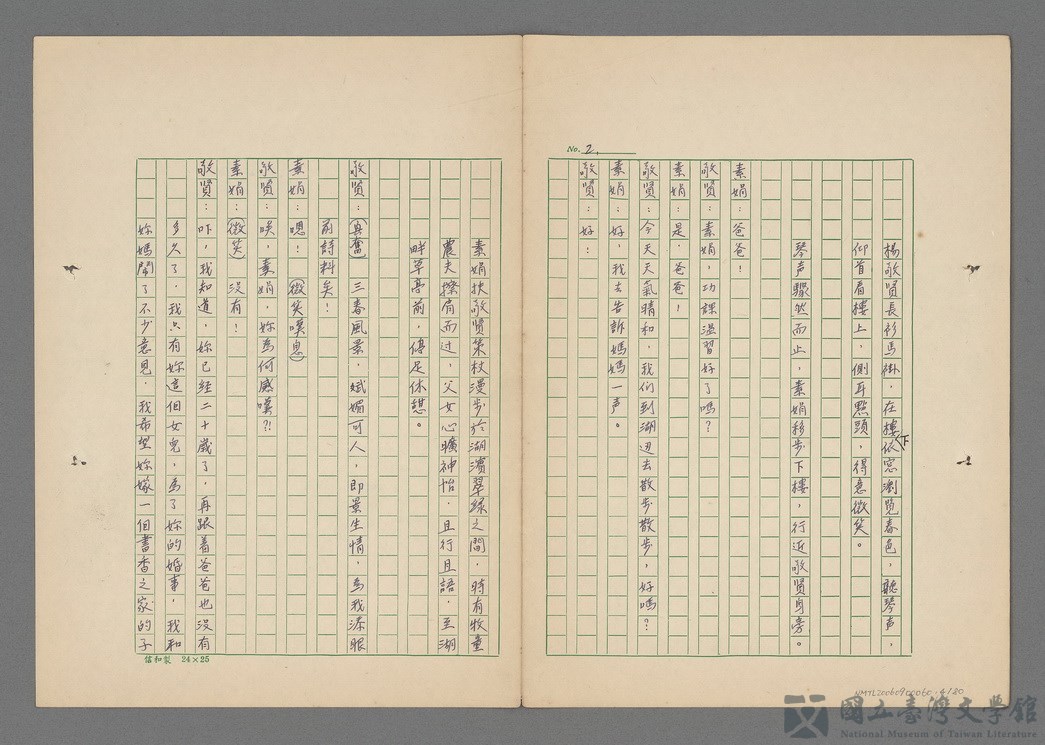 No. 2.
楊敬賢長衫馬褂，在樓下依窓瀏覽春色，聽琴声，
仰首看樓上，側耳點頭，得意微笑。
琴声驟然而止，素娟移步下樓，行近敬賢身旁。
素娟：爸爸！
敬賢：素娟，功課溫習好了嗎？
素娟：是，爸爸，
敬賢：今天天氣晴和，我们到湖辺去散步散步，好嗎？
素娟：好，我去告訴媽媽一声。
敬賢：好：
素娟扶敬賢策杖漫步於湖濱翠綠之間，時有牧童
農夫擦肩而过，父女心曠神怡，且行且語，至湖
畔草亭前，停足休憩。
敬賢：（興奮）三春風景，嫵媚可人，即景生情，為我添眼
前詩料矣！
素娟：嗯！（微笑嘆息）
敬賢：唉，素娟，妳為何感嘆？！
素娟：（微笑）沒有！
敬賢：吓，我知道，妳已经二十歲了，再跟着爸爸也沒有
多久了，我只有妳這個女兒，為了妳的婚事，我和
妳媽鬧了不少意見，我希望妳嫁一個書香之家的子
信和製 24×25
NMTL20060900060-4180
國立臺灣文學館
National Museum of Taiwan Literature